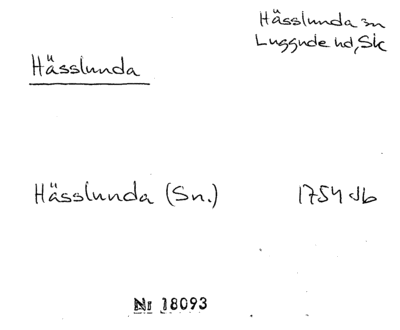 Hässlunda sn
Luggude hd, Sk
Hässlunda
Hässlunda (Sn.) 1754 db
Nr 18093